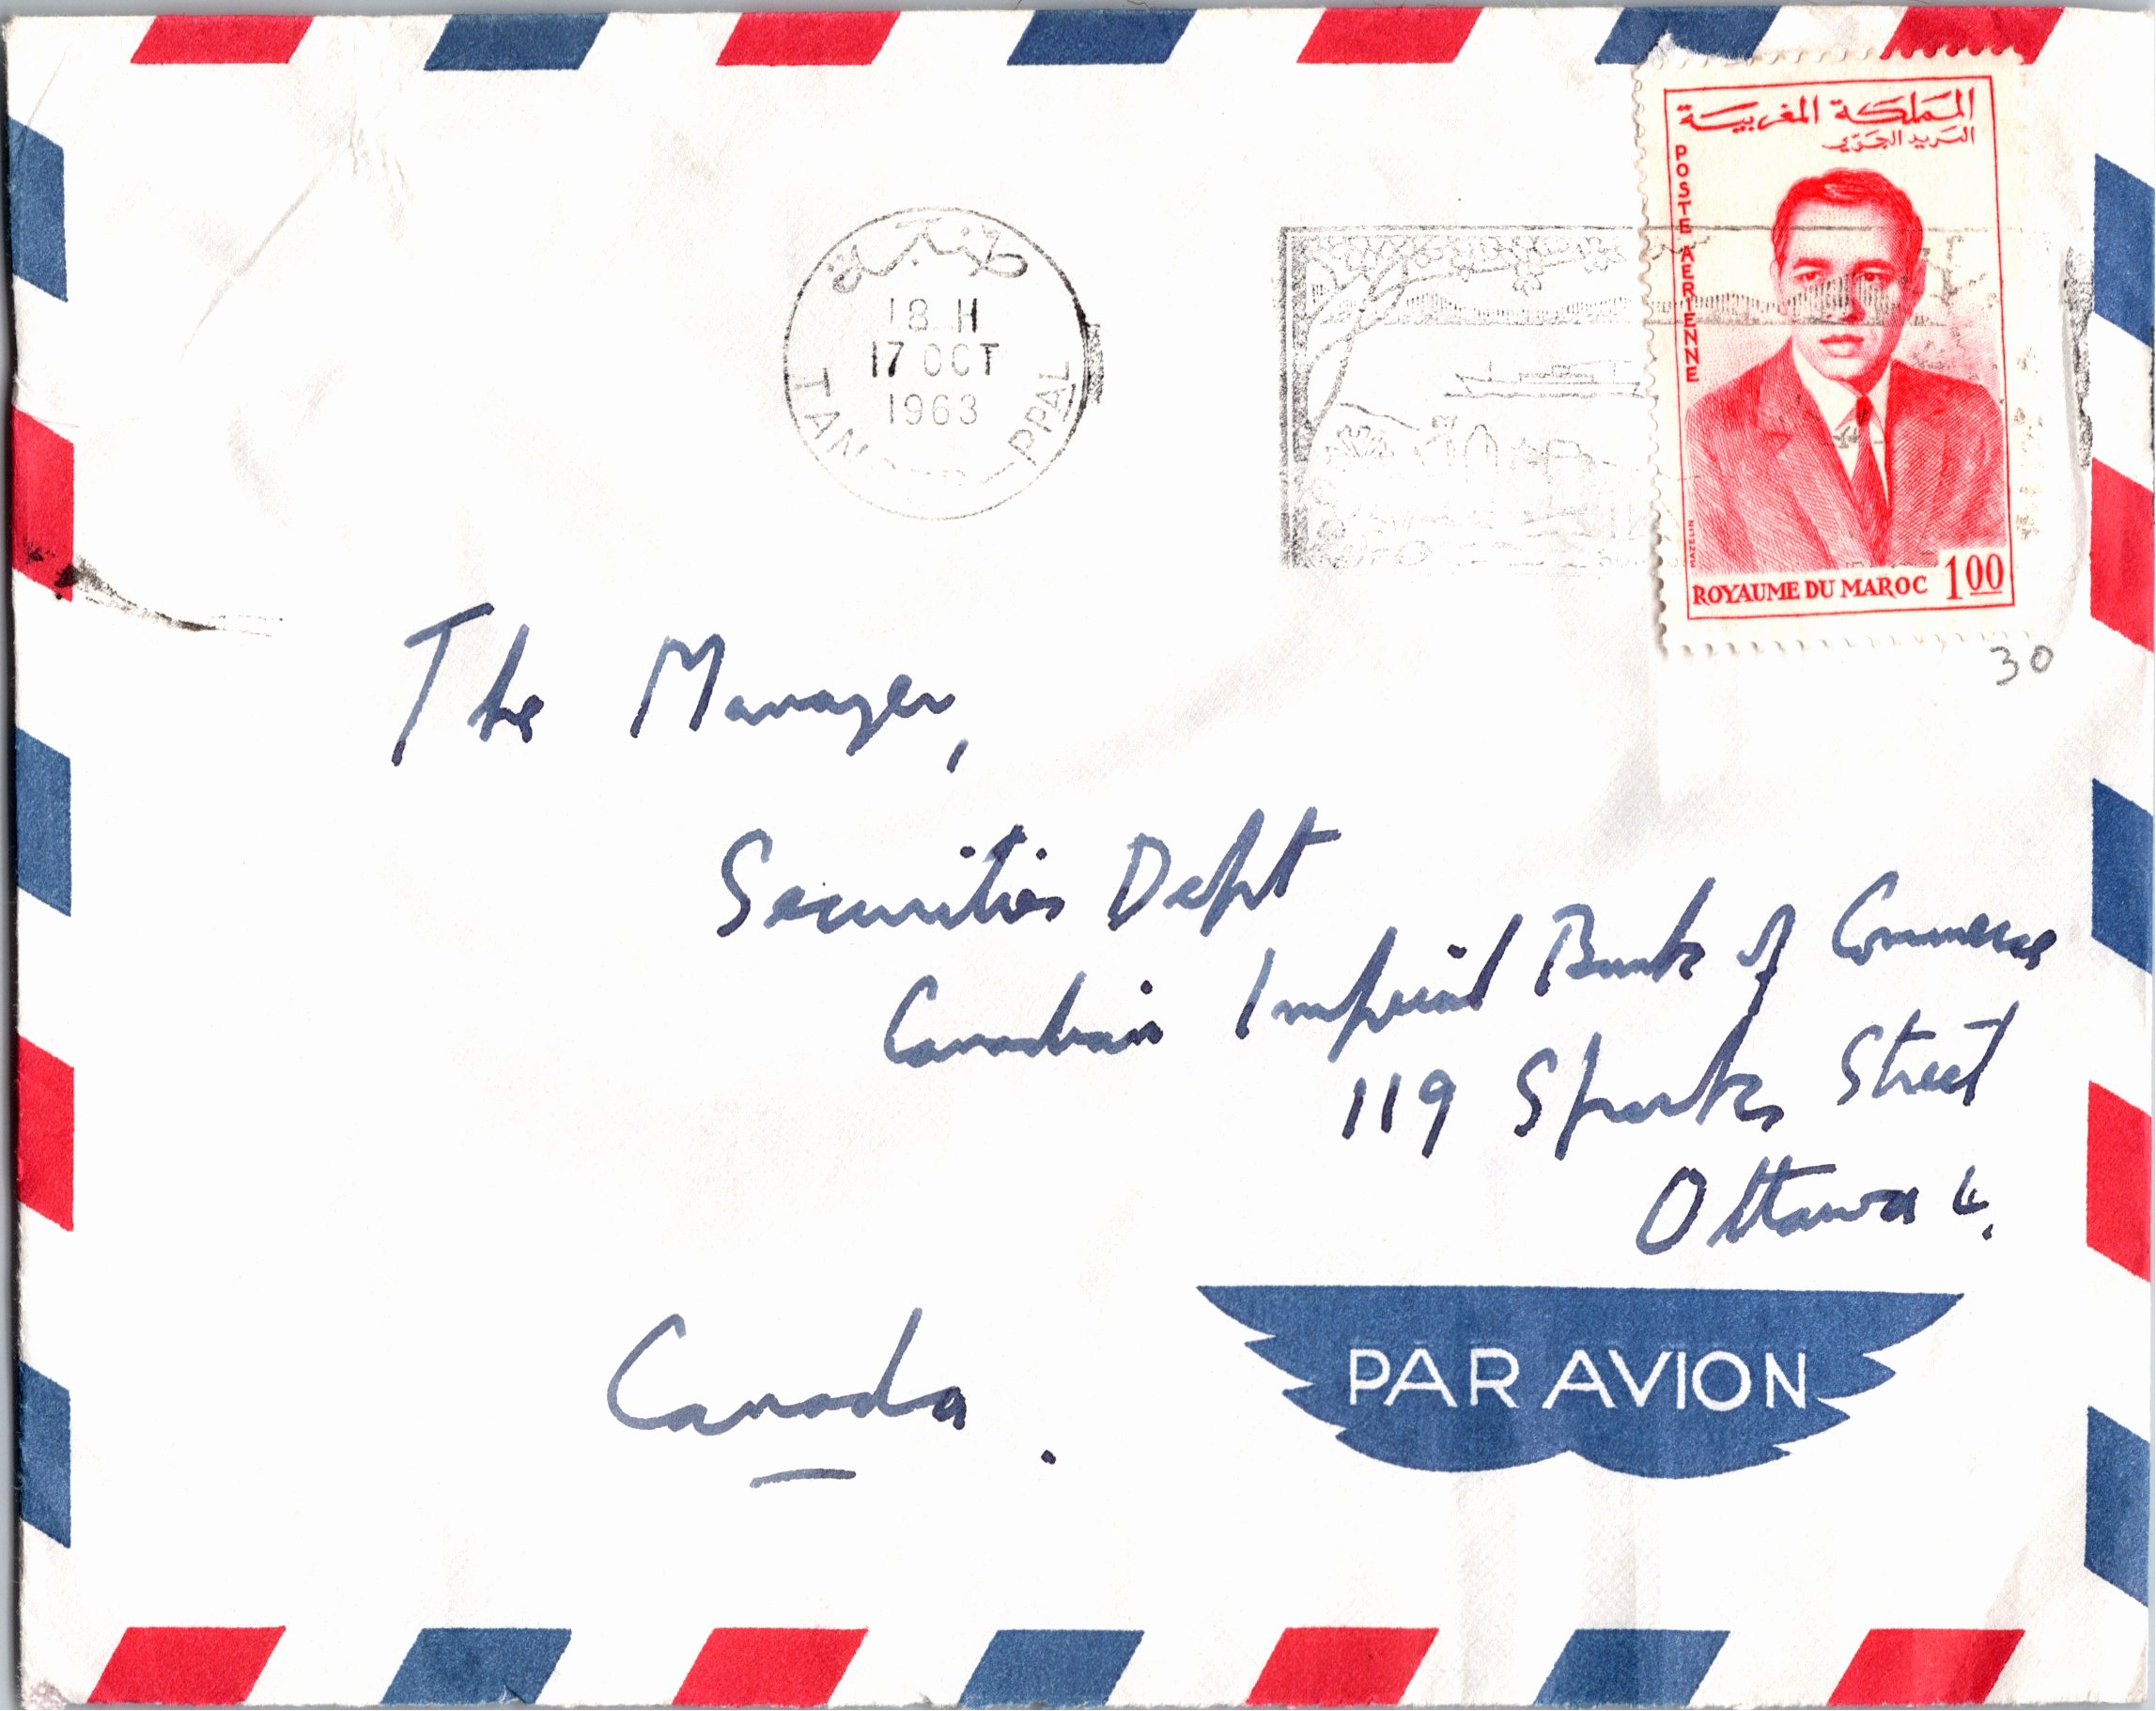 المملكة المغربية
البريد الجوي
POSTE AERIENNE
MAZELIN
ROYAUME DU MAROC 1.00
30
طنجة
18 H
17 OCT
1963
TANGER PPAL
The Manager,
Securities Dept
Canadian Imperial Bank of Commerce
119 Sparks Street
Ottawa 4.
Canada.
PAR AVION